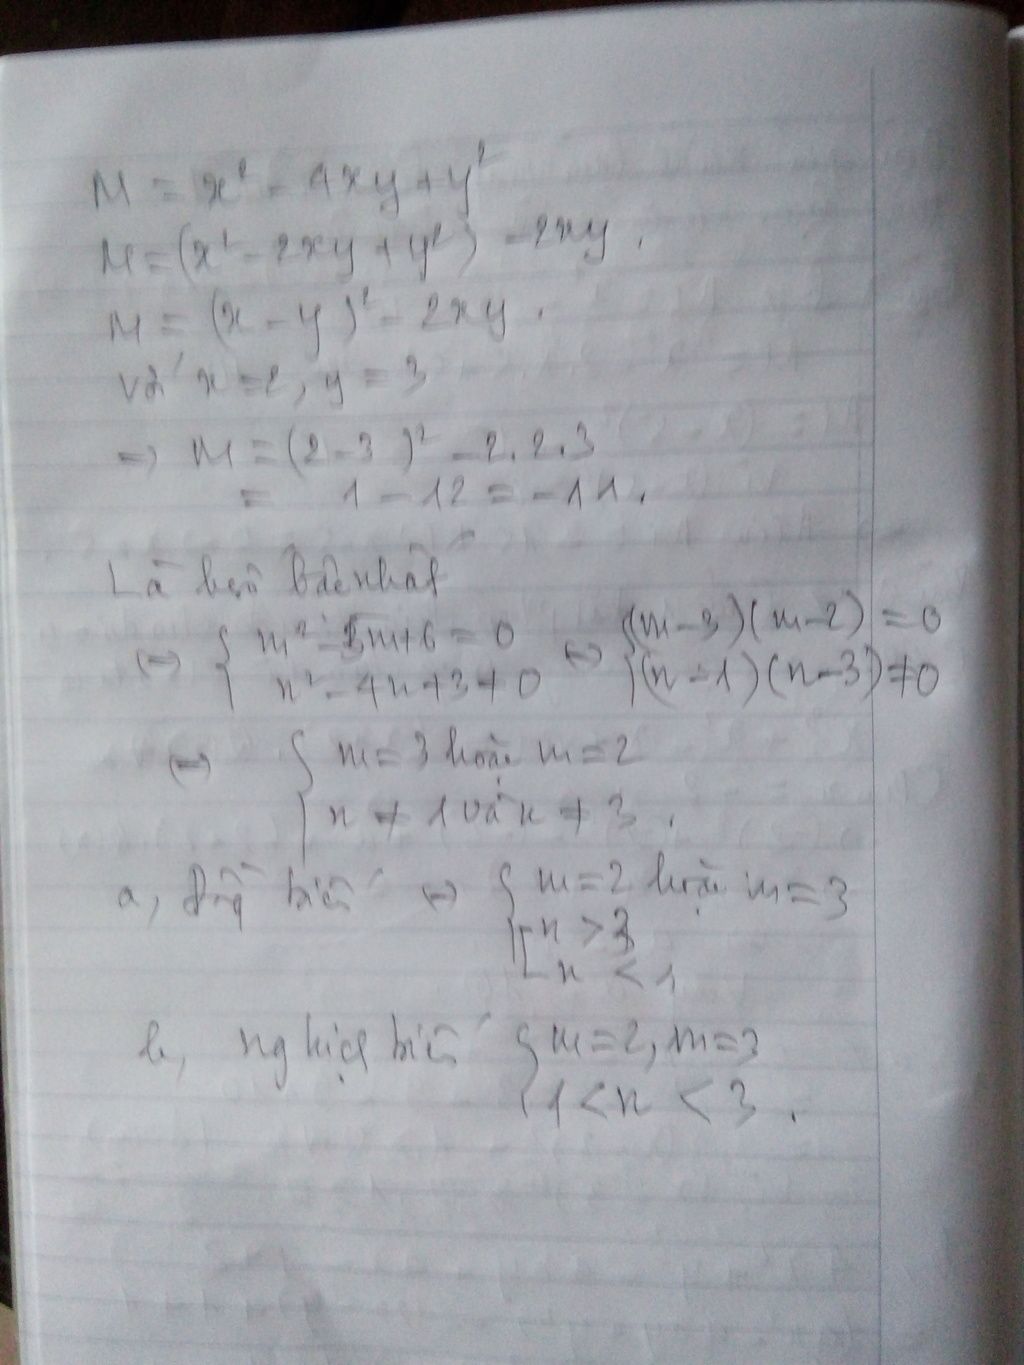 M = x² - 4xy + y²
M = (x² - 2xy + y²) - 2xy.
M = (x - y)² - 2xy.
với x = 2, y = 3
=> M = (2 - 3)² - 2.2.3
= 1 - 12 = -11.
Là hs bậc nhất
<=> { m² - 5m + 6 = 0 <=> { (m - 3)(m - 2) = 0
n² - 4n + 3 ≠ 0 (n - 1)(n - 3) ≠ 0
<=> { m = 3 hoặc m = 2
n ≠ 1 và n ≠ 3.
a, đồng biến <=> { m = 2 hoặc m = 3
[ n > 3
n < 1
b, nghịch biến { m = 2, m = 3
1 < n < 3.